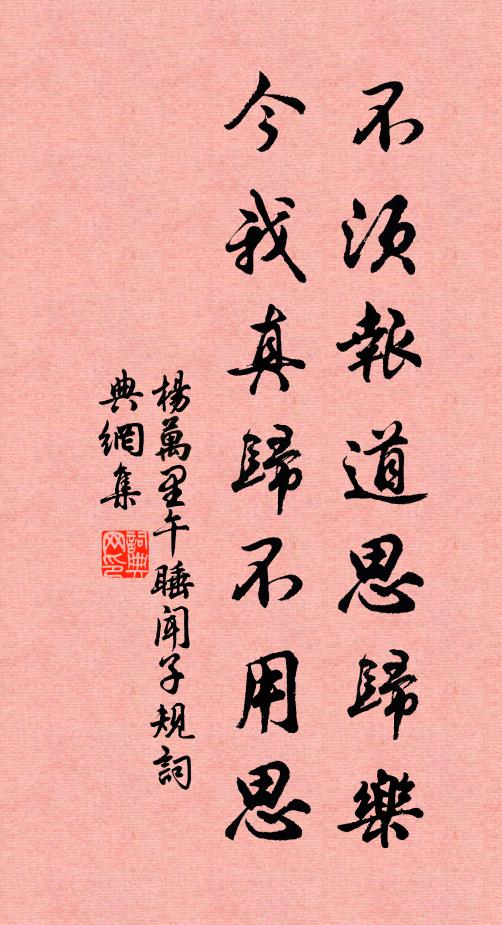 不須報道思歸樂
今我真歸不用思
楊萬里午睡聞子規詞
典網集
詞典网印